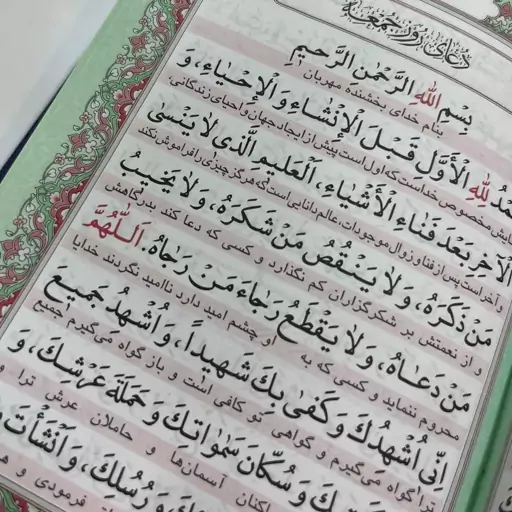 دعای روز جمعه
بِسْمِ اللهِ الرَّحْمٰنِ الرَّحیمِ
بنام خدای بخشنده مهربان
مْدُ لِلّٰهِ الْاَوَّلِ قَبْلَ الْاِنْشاءِ وَ الْاِحْیاءِ، وَ
ایش مخصوص خداست که اول است پیش از ایجاد جهان و احیای زندگانی،
الْآخِرِ بَعْدَ فَناءِ الْاَشْیاءِ، اَلْعَلیمِ الَّذی لا یَنْسیٰ
و آخر است پس از فنا و زوال موجودات، عالم دانایی است که هرگز چیزی را فراموش نکند
مَنْ ذَکَرَهُ، وَ لا یَنْقُصُ مَنْ شَکَرَهُ، وَ لا یَخیبُ
و از نعمتش بر شکرگزاران کم نگذارد و کسی که دعا کند بدرگاهش
مَنْ دَعاهُ، وَ لا یَقْطَعُ رَجاءَ مَنْ رَجاهُ. اَللّٰهُمَّ
محروم ننماید و کسی که به او چشم امید دارد ناامید نگردند خدایا
اِنّی اُشْهِدُکَ وَ کَفیٰ بِکَ شَهیداً، وَ اُشْهِدُ جَمیعَ
ترا گواه می‌گیرم و گواهی تو کافی است و باز گواه می‌گیرم جمیع
وَ سُکّانَ سَمٰواتِکَ وَ حَمَلَةَ عَرْشِکَ، وَ
اکنان آسمان‌ها و حاملان عرش ترا و
وَ رُسُلِکَ، وَ اَنْشَأْتَ
فرمودی و